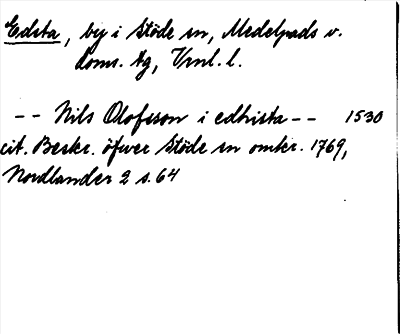 Edsta, by i Stöde sn, Medelpads v.
doms. tg, Vrnl. l.
-- Nils Olofsson i edhista -- 1530
cit. Beskr. öfwer Stöde sn omkr. 1769,
Nordlander 2 s. 64